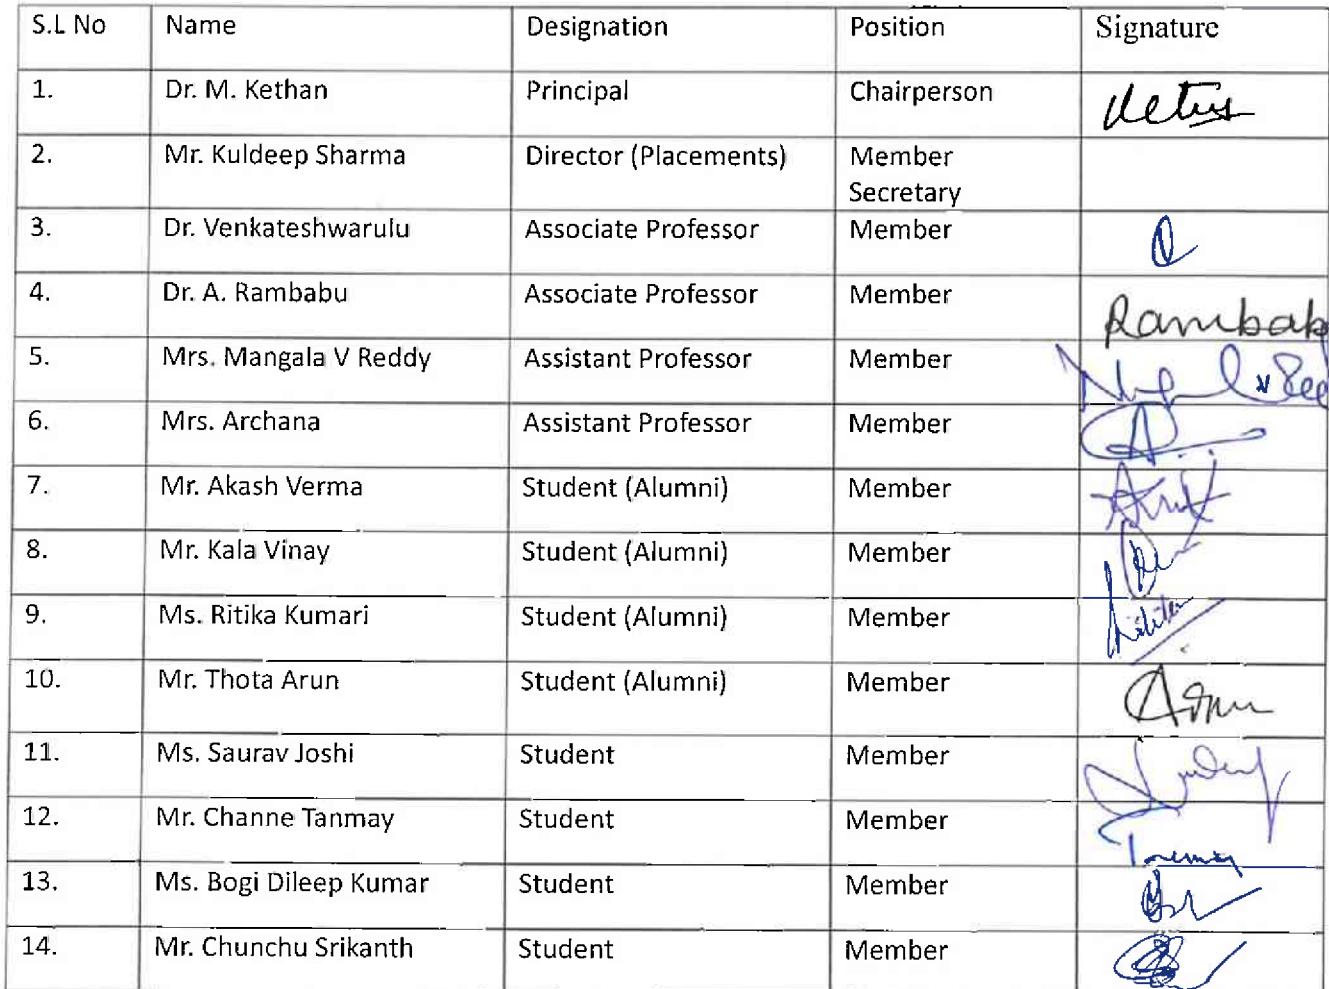 S.L No Name Designation Position Signature
1. Dr. M. Kethan Principal Chairperson
2. Mr. Kuldeep Sharma Director (Placements) Member
Secretary
3. Dr. Venkateshwarulu Associate Professor Member
4. Dr. A. Rambabu Associate Professor Member Rambab
5. Mrs. Mangala V Reddy Assistant Professor Member
6. Mrs. Archana Assistant Professor Member
7. Mr. Akash Verma Student (Alumni) Member
8. Mr. Kala Vinay Student (Alumni) Member
9. Ms. Ritika Kumari Student (Alumni) Member
10. Mr. Thota Arun Student (Alumni) Member
11. Ms. Saurav Joshi Student Member
12. Mr. Channe Tanmay Student Member
13. Ms. Bogi Dileep Kumar Student Member
14. Mr. Chunchu Srikanth Student Member